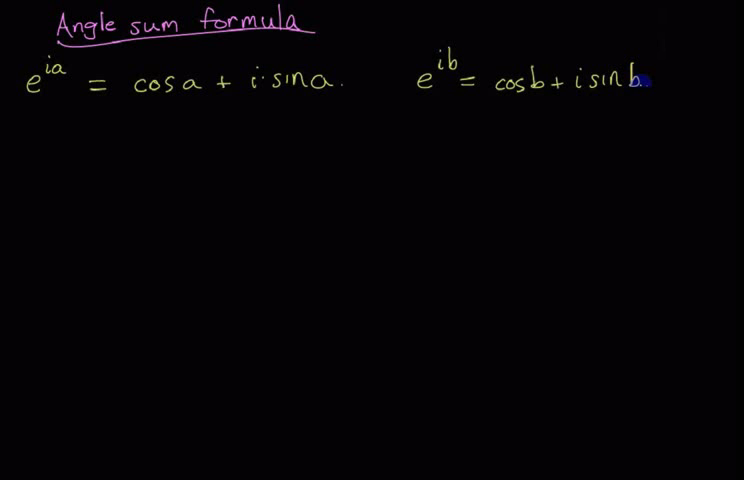 Angle sum formula
e^{ia} = cos a + i · sin a. e^{ib} = cos b + i sin b.